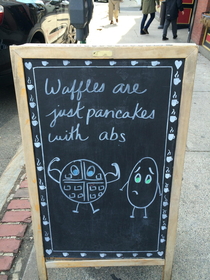 Waffles are
just pancakes
with abs